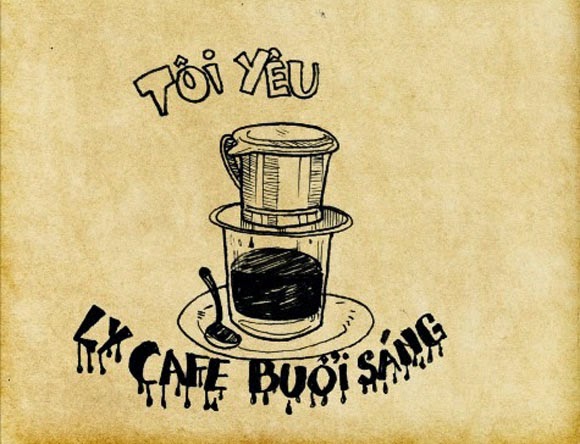 TÔI YÊU
LY CAFE BUỔI SÁNG